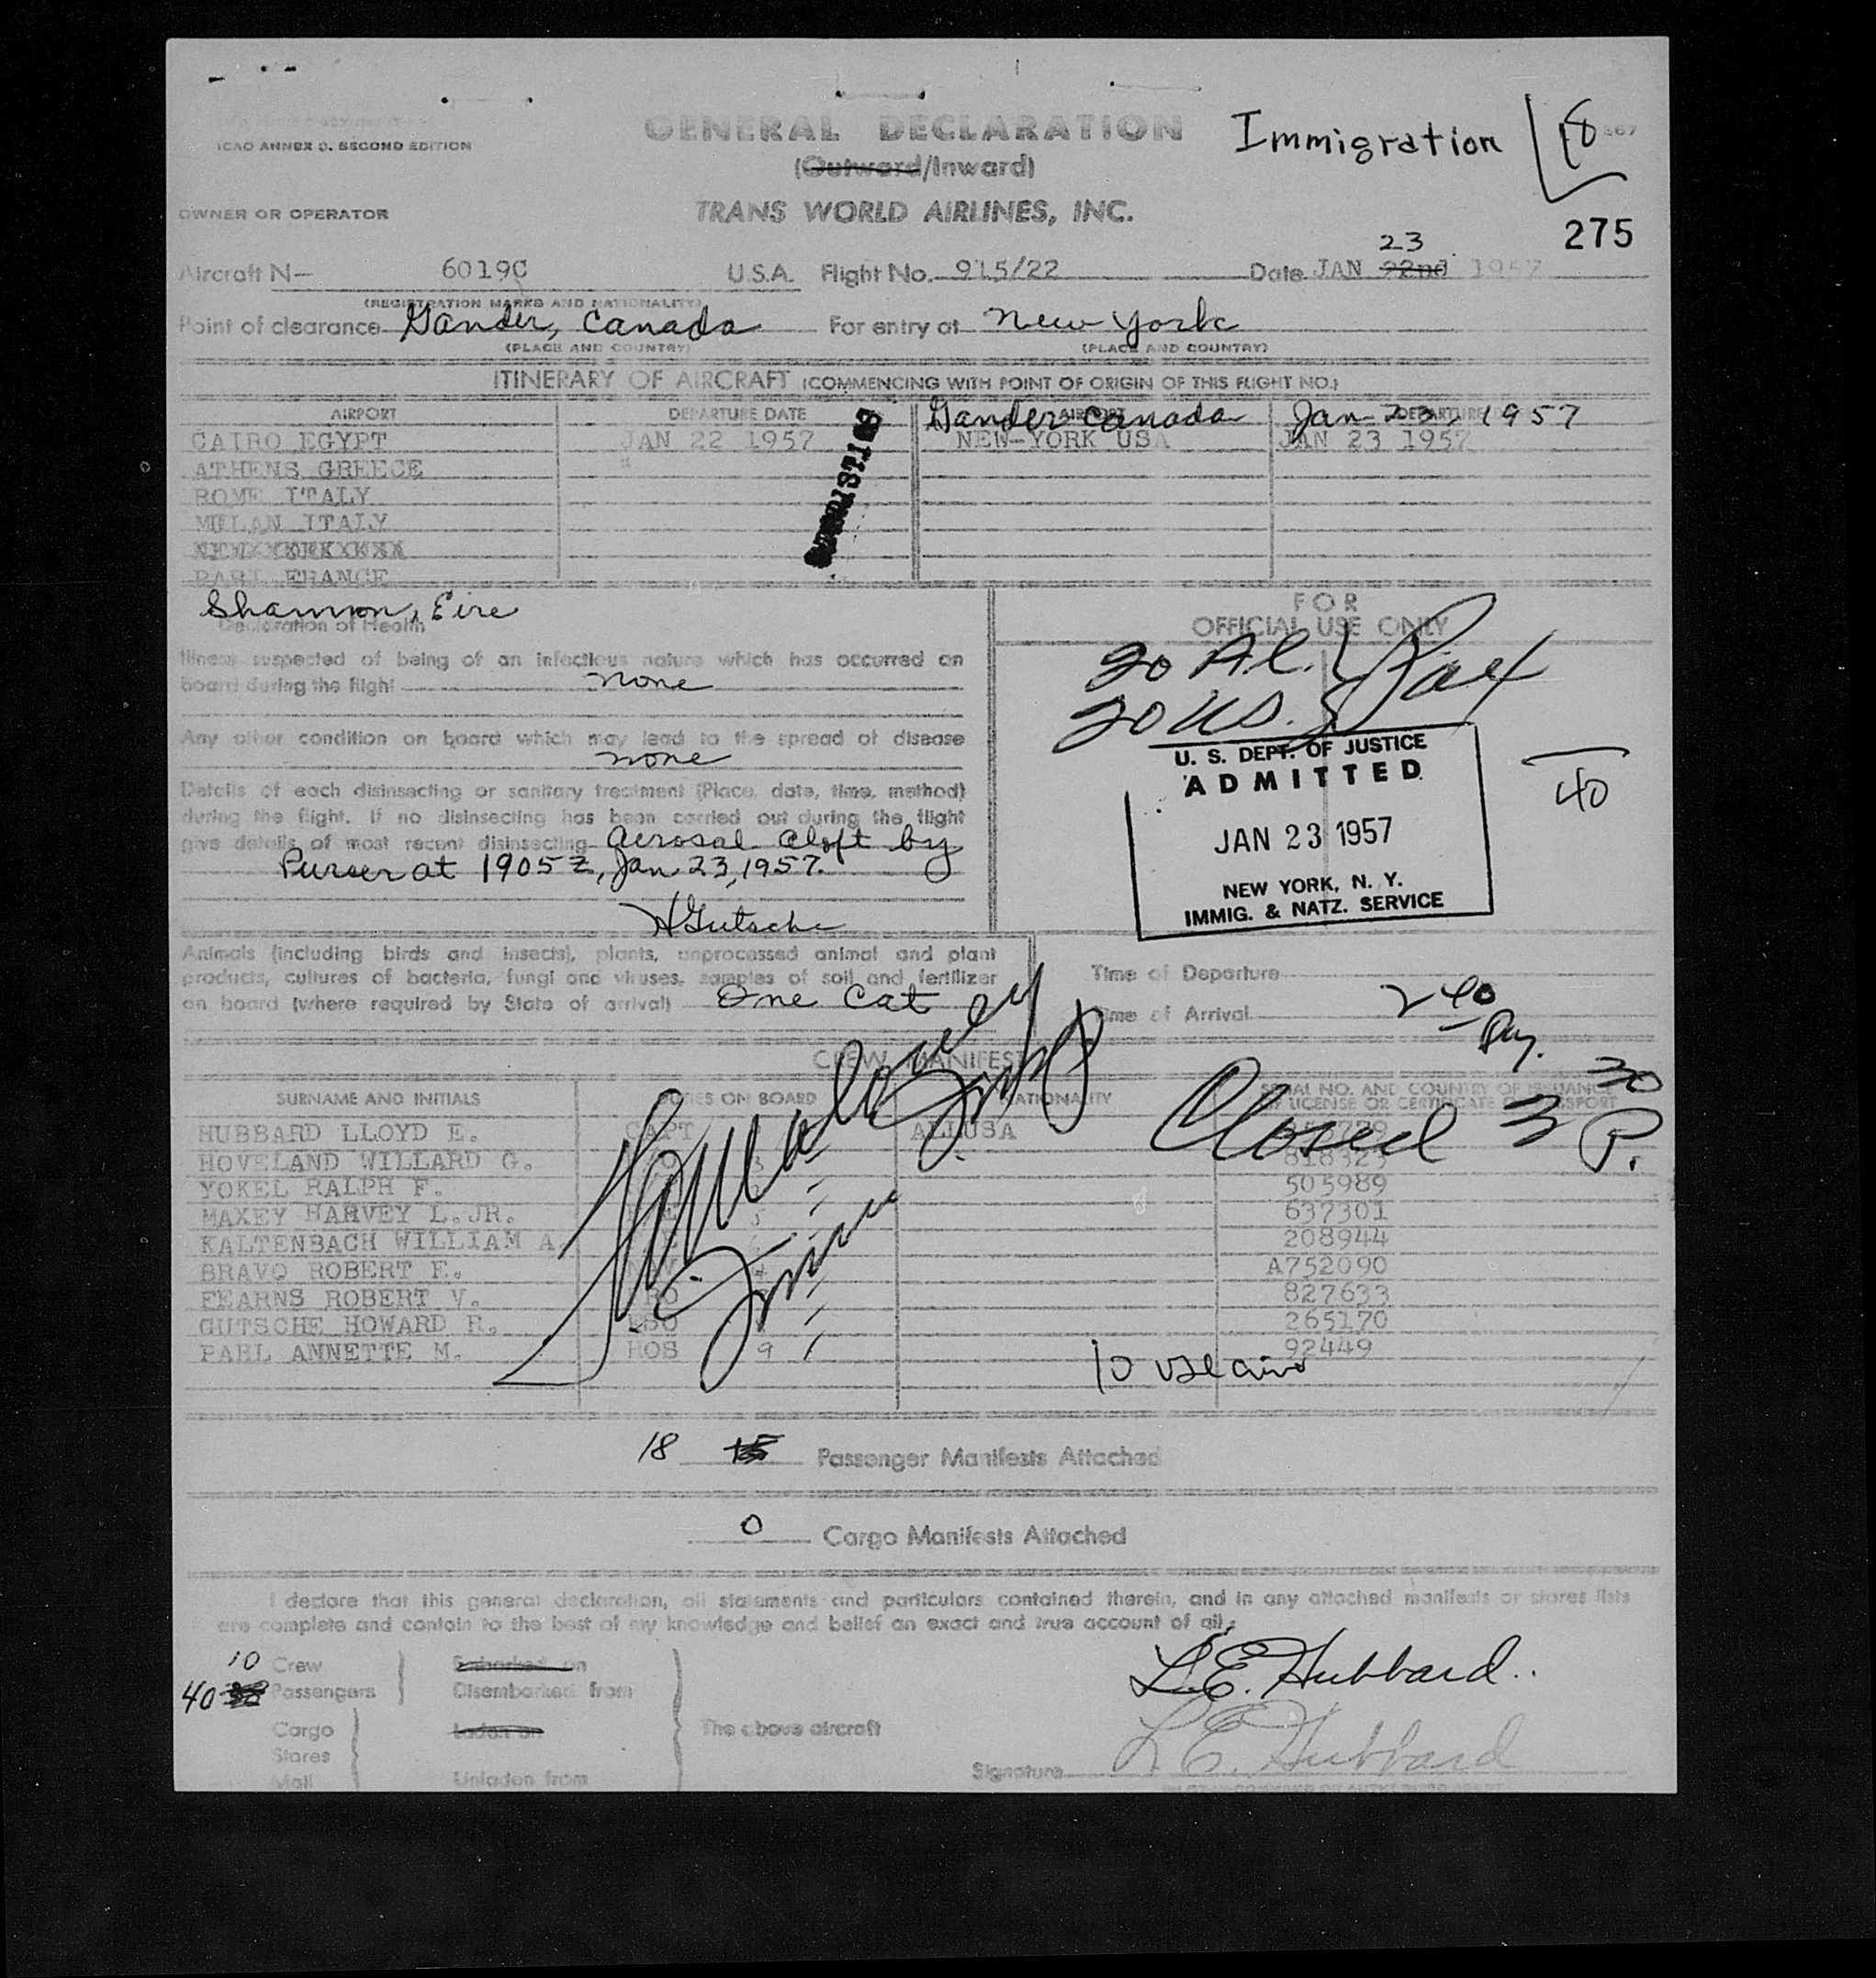 ICAO ANNEX 9. SECOND EDITION
GENERAL DECLARATION
Immigration
18
(Outward/Inward)
OWNER OR OPERATOR
TRANS WORLD AIRLINES, INC.
275
23
Aircraft N— 6019C U.S.A. Flight No. 915/22 Date JAN 22nd 1957
(REGISTRATION MARKS AND NATIONALITY)
Point of clearance Gander, Canada For entry at New York
(PLACE AND COUNTRY) (PLACE AND COUNTRY)
ITINERARY OF AIRCRAFT (COMMENCING WITH POINT OF ORIGIN OF THIS FLIGHT NO.)
AIRPORT DEPARTURE DATE Gander Canada Jan 23, 1957
CAIRO EGYPT JAN 22 1957 NEW-YORK USA JAN 23 1957
ATHENS GREECE "
ROME ITALY
MILAN ITALY
PARI FRANCE
Shannon, Eire
Declaration of Health
Illness suspected of being of an infectious nature which has occurred on
board during the flight none
Any other condition on board which may lead to the spread of disease
none
Details of each disinsecting or sanitary treatment (Place, date, time, method)
during the flight. If no disinsecting has been carried out during the flight
give details of most recent disinsecting Aerosal Aloft by
Purser at 1905Z, Jan. 23, 1957.
H Gutsche
FOR
OFFICIAL USE ONLY
20 Al.
20 US. Pax
40
U. S. DEPT. OF JUSTICE
ADMITTED
JAN 23 1957
NEW YORK, N. Y.
IMMIG. & NATZ. SERVICE
Animals (including birds and insects), plants, unprocessed animal and plant
products, cultures of bacteria, fungi and viruses, samples of soil and fertilizer
on board (where required by State of arrival) One Cat
Time of Departure
Time of Arrival 2 40
CREW MANIFEST
Closed 3 30 P.
SURNAME AND INITIALS DUTIES ON BOARD NATIONALITY SERIAL NO. AND COUNTRY OF ISSUANCE
OF LICENSE OR CERTIFICATE OR PASSPORT
HUBBARD LLOYD E. CAPT ALLUSA
HOVELAND WILLARD G. 3 818323
YOKEL RALPH F. 505989
MAXEY HARVEY L.JR. 5 637301
KALTENBACH WILLIAM A 208944
BRAVO ROBERT E. 4 A752090
FEARNS ROBERT V. RO 827633
GUTSCHE HOWARD R. 265170
PAHL ANNETTE M. HOS 9 92449
10
18 15 Passenger Manifests Attached
0 Cargo Manifests Attached
I declare that this general declaration, all statements and particulars contained therein, and in any attached manifests or stores lists
are complete and contain to the best of my knowledge and belief an exact and true account of all
10 Crew Embarked on
40 Passengers Disembarked from
L.E. Hubbard.
Cargo Laden on The above aircraft
Stores
Mail Unladen from
Signature L E. Hubbard